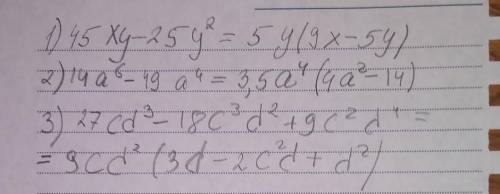 1) 45xy-25y² = 5y(9x-5y)
2) 14a⁶-49a⁴ = 3,5a⁴(4a²-14)
3) 27cd³-18c³d²+9c²d⁴ =
= 9cd²(3d-2c²d+d²)